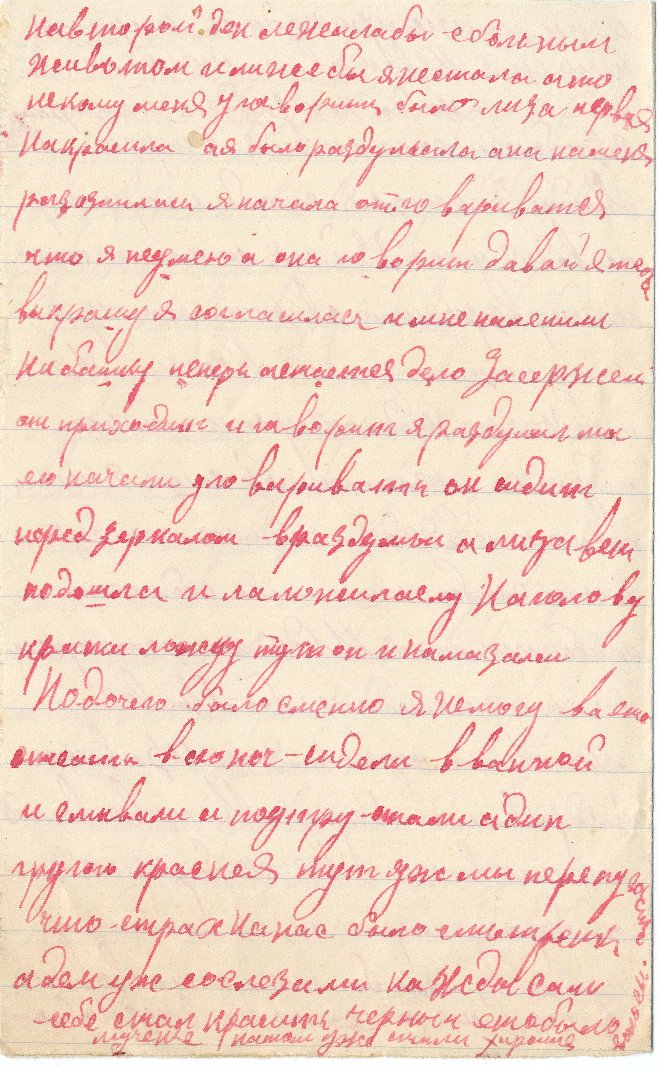 на второй ден лежала бы с больным
животом и лижебы я нестала а то
некому меня уговорить было лиза первая
накрасила ая было раздумала она на меня
разозлилась я начала отговариватся
что я неумею а она говорит давай я тебя
выкрашу я согласилась и мне налепили
на башку теперь астаетса дело за сержей
он приходит и говорит я раздумал мы
его начали уговаривать он сидит
перед зеркалом враздумьи а лиза
подошла и ламжилаему на голову
краски ложку тут он и намазали
Додочего было смешно я немогу ва
описать всю ноч-сидели в ванной
и смывали и подутру стали адин
другого краснея тут уж мы перепугались
что-страх на нас было смотреть,
а дом уж сослезами каждый сам
себе стал красить черным ето было
мученье патом уже стали хорошие